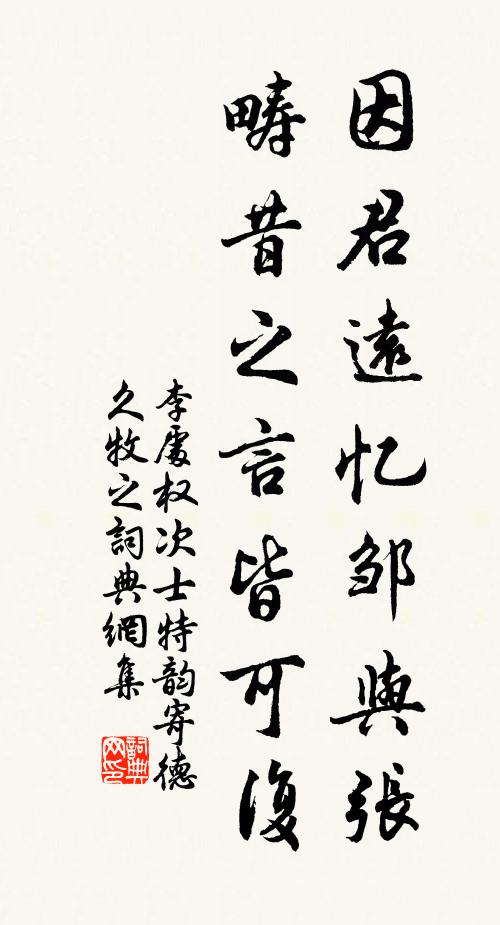 因君遠忆邹與張
畴昔之言皆可復
李處权次士特韵寄德
久牧之詞典網集
詞典网印